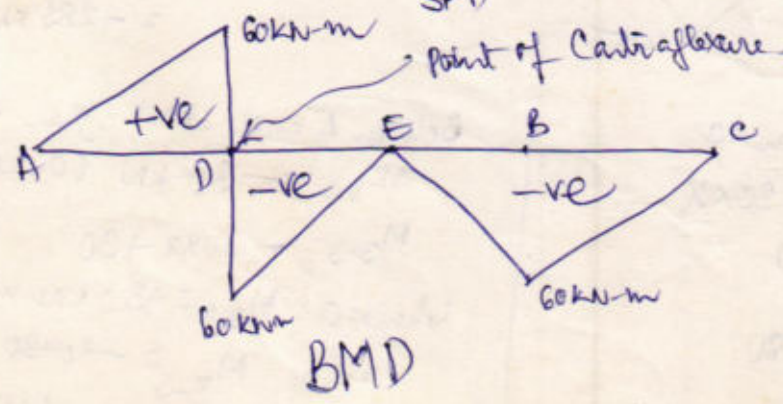 60KN-m
Point of Contraflexure
+ve
A D E B C
-ve -ve
60KNm
60KN-m
BMD